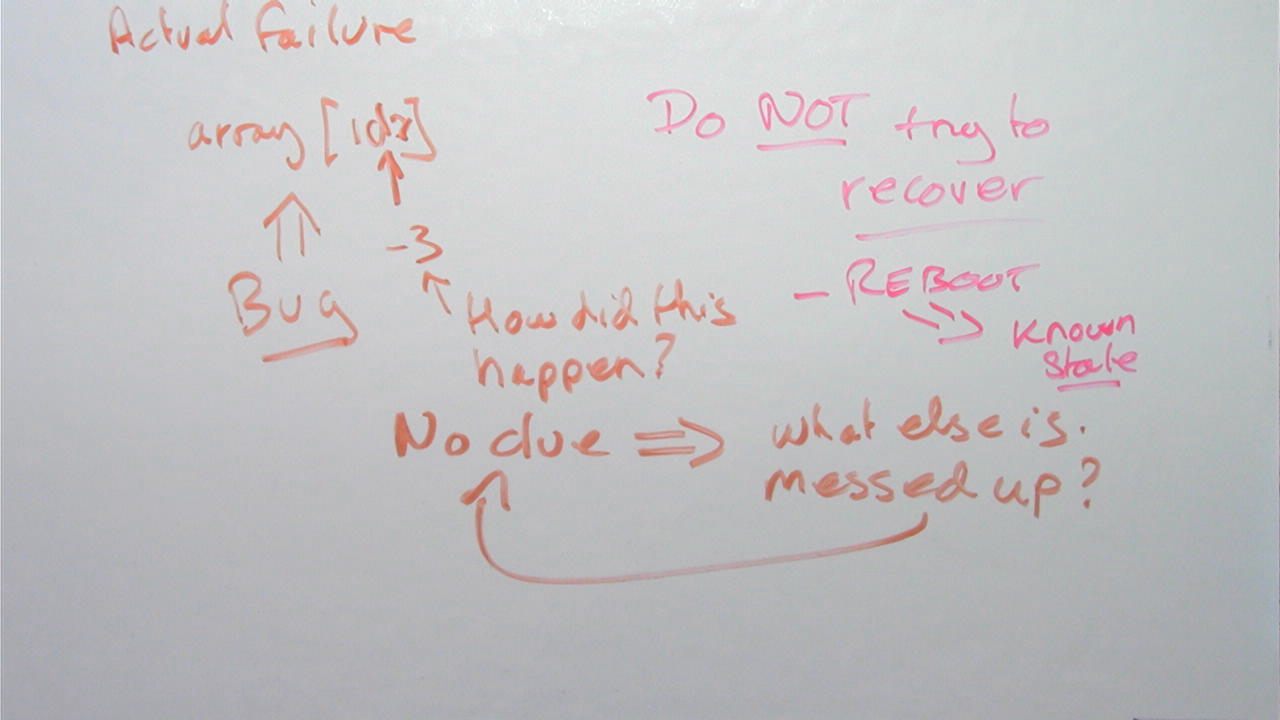 Actual failure
array [idx]
-3
Bug
How did this
happen?
No clue ⇒ what else is.
messed up?
Do NOT try to
recover
- REBOOT
known
state